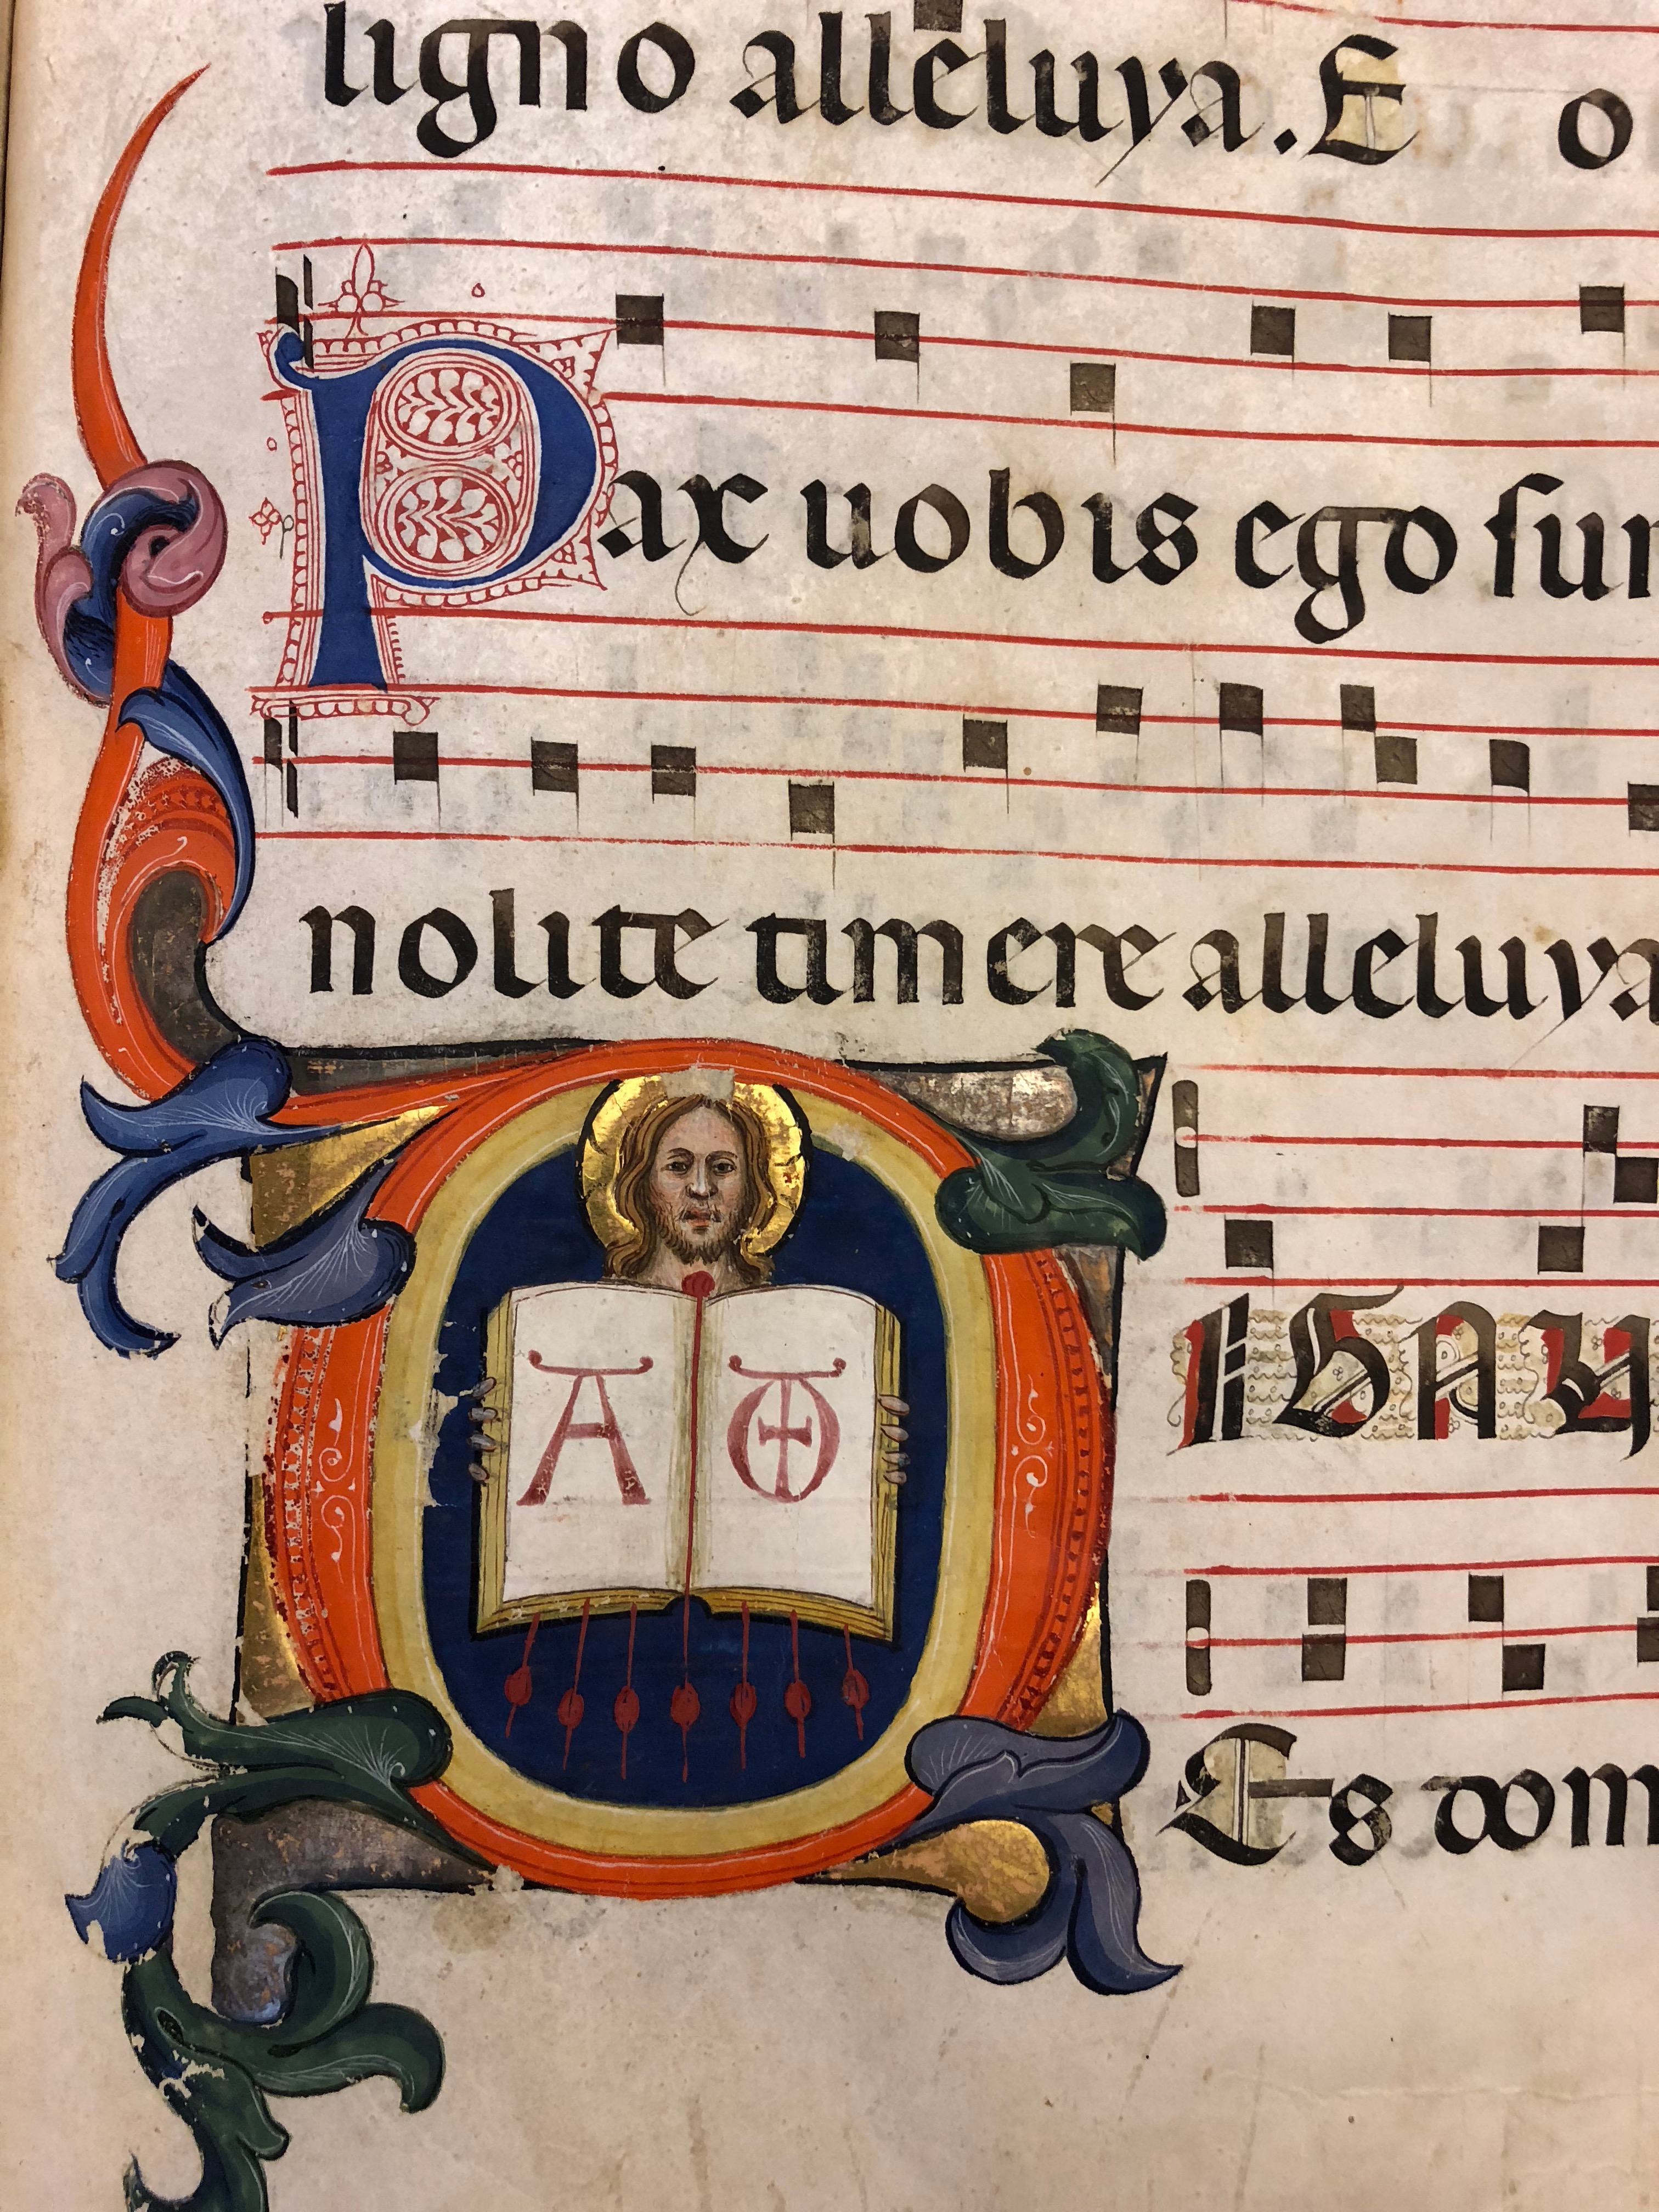 ligno alleluya. E o
Pax uobis ego ſum
nolite timere alleluya
DIGNU
A O
Es dom